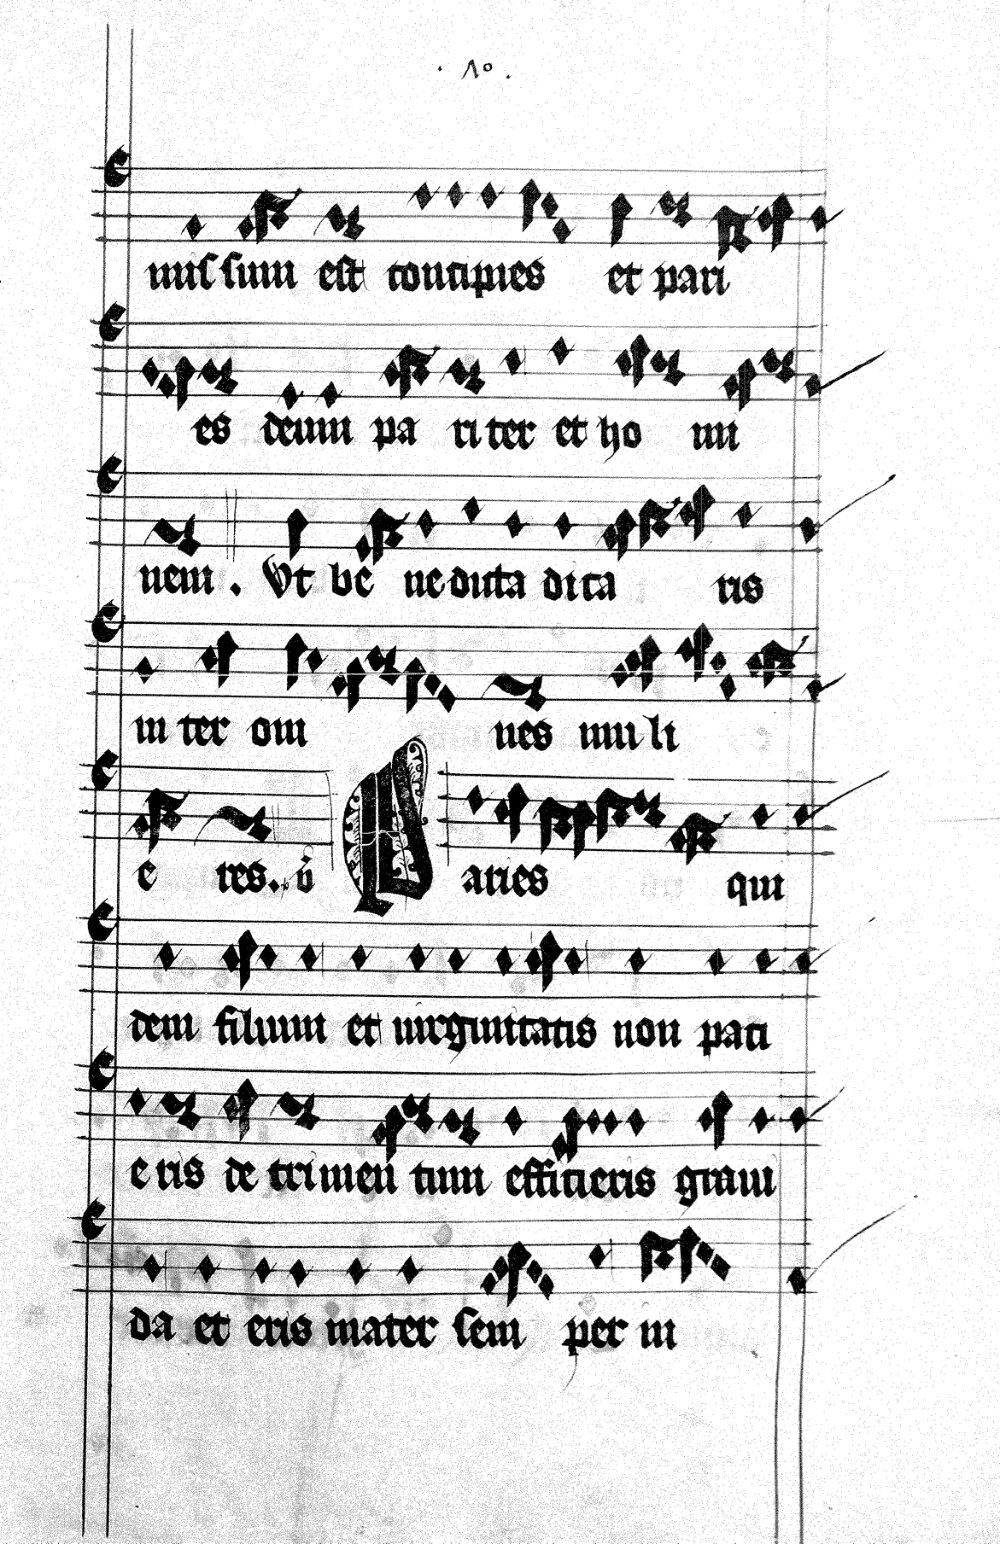 . 10 .
mis sum est concipies et pari
es deum pa ri ter et ho mi
nem . Vt be ne dicta dica ris
in ter om nes mu li
e res . v̊ Paries qui
dem filium et uirginitatis non pati
e ris de trimen tum efficieris graui
da et eris mater sem per in